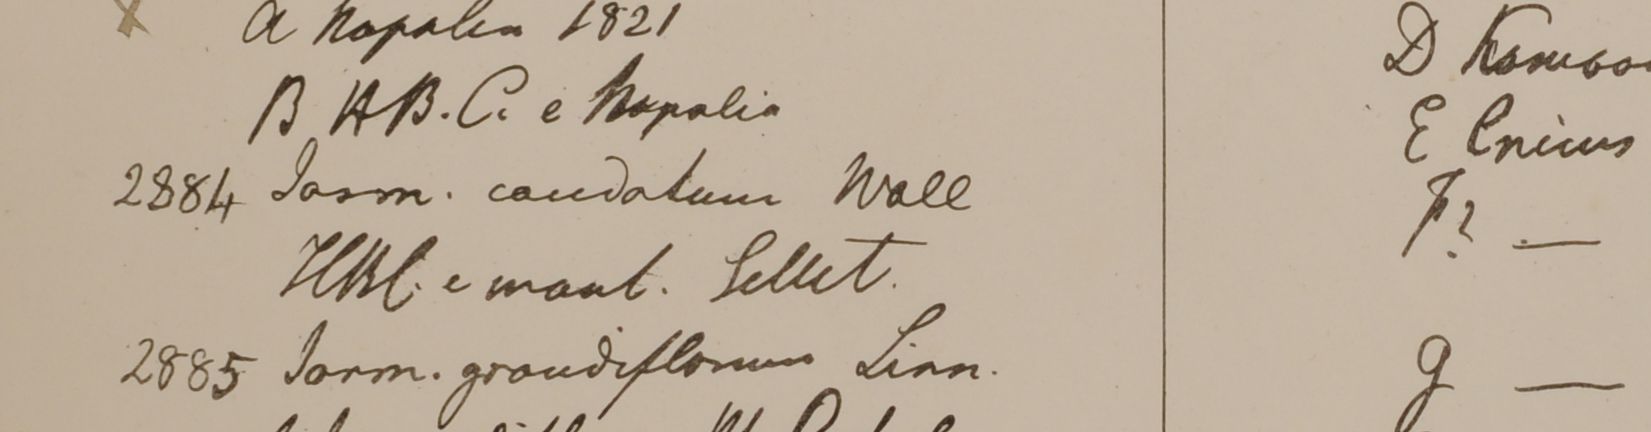 A Napalia 1821
B H.B.C. e Napalia
2884 Jasm. caudatum Wall
HBC. e mont. Sillet.
2885 Jasm. grandiflorum Linn.
D Kamoon
E Cnicus
F? —
G —